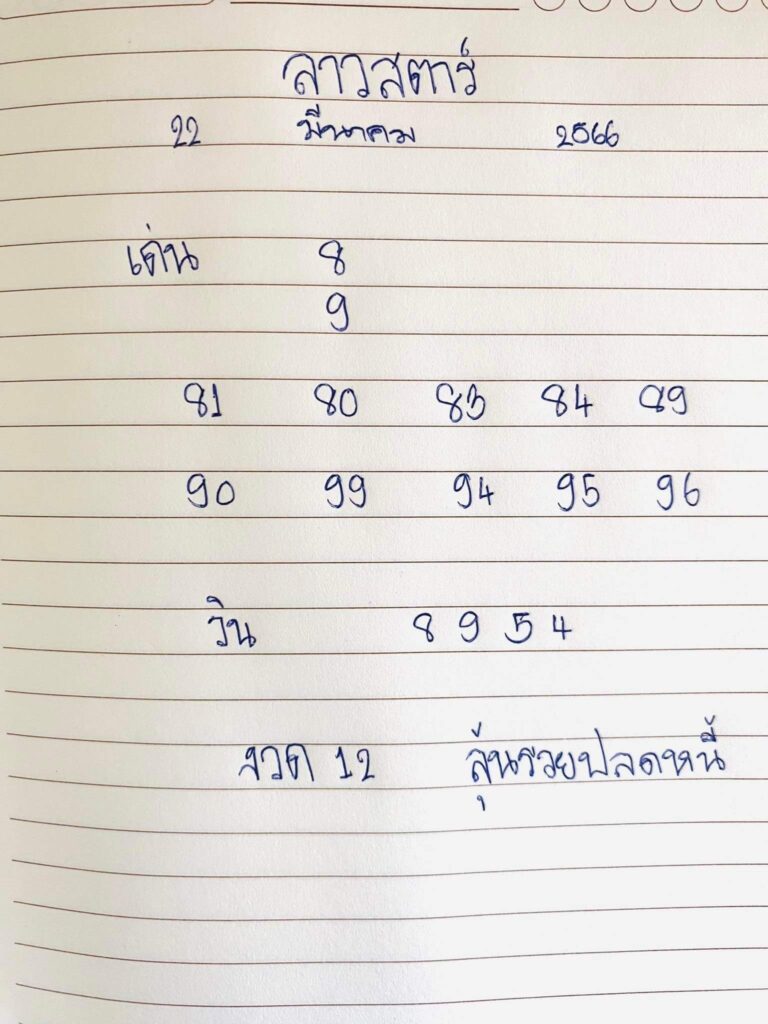 ลาวสตาร์
22 มีนาคม 2566
เด่น 8
9
81 80 83 84 89
90 99 94 95 96
วิน 8 9 5 4
งวด 12 ลุ้นรวยปลดหนี้